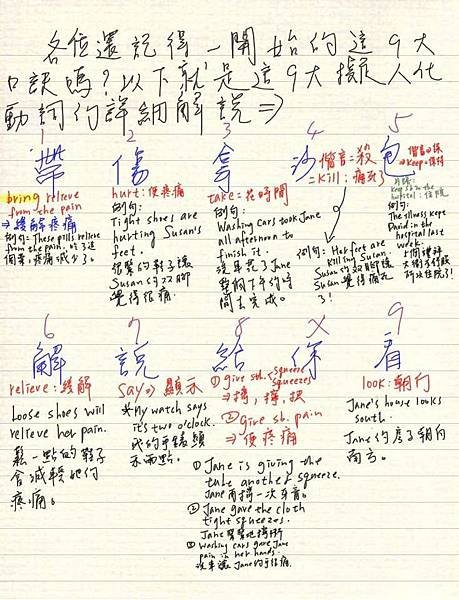 各位還記得一開始的這9大
口訣嗎?以下就是這9大擬人化
動詞的詳細解說⇒
1 2 3 4 5
帶 傷 拿 沙 包
諧音=殺
=kill:痛死了
諧音=保
⇒keep=保持
bring relieve
from the pain
⇒緩解疼痛
例句:These pills relieve
from the pain.吃了這
個藥,疼痛減少了。
hurt:使疼痛
例句:
Tight shoes are
hurting Susan's
feet.
很緊的鞋子讓
Susan的双腳
覺得很痛.
take=花時間
例句:
Washing cars took Jane
all afternoon to
finish it.
洗車花了Jane
整個下午的時
間去完成。
例句:Her feet are
killing Susan.
Susan的双腳讓
Susan覺得痛死
了!
片語:
keep sb in the
hospital:住院
例句:
The illness kept
David in the
hospital last
week.
6 7 8 X 9
解 說 給 你 看
relieve:緩解
Loose shoes will
relieve her pain.
鬆一點的鞋子
會減輕她的
疼痛。
say⇒顯示
*My watch says
it's two o'clock.
我的手錶顯
示兩點。
① give sth. squeeze
squeezes
⇒擠,擰,扭
② give sb. pain
⇒使疼痛
① Jane is giving the
tube another squeeze.
Jane再擠一次牙膏。
② Jane gave the cloth
tight squeezes.
③ Washing cars gave Jane
pain in her hands.
洗車讓Jane的手很痛.
look:朝向
Jane's house looks
south.
Jane的房子朝向
南方。